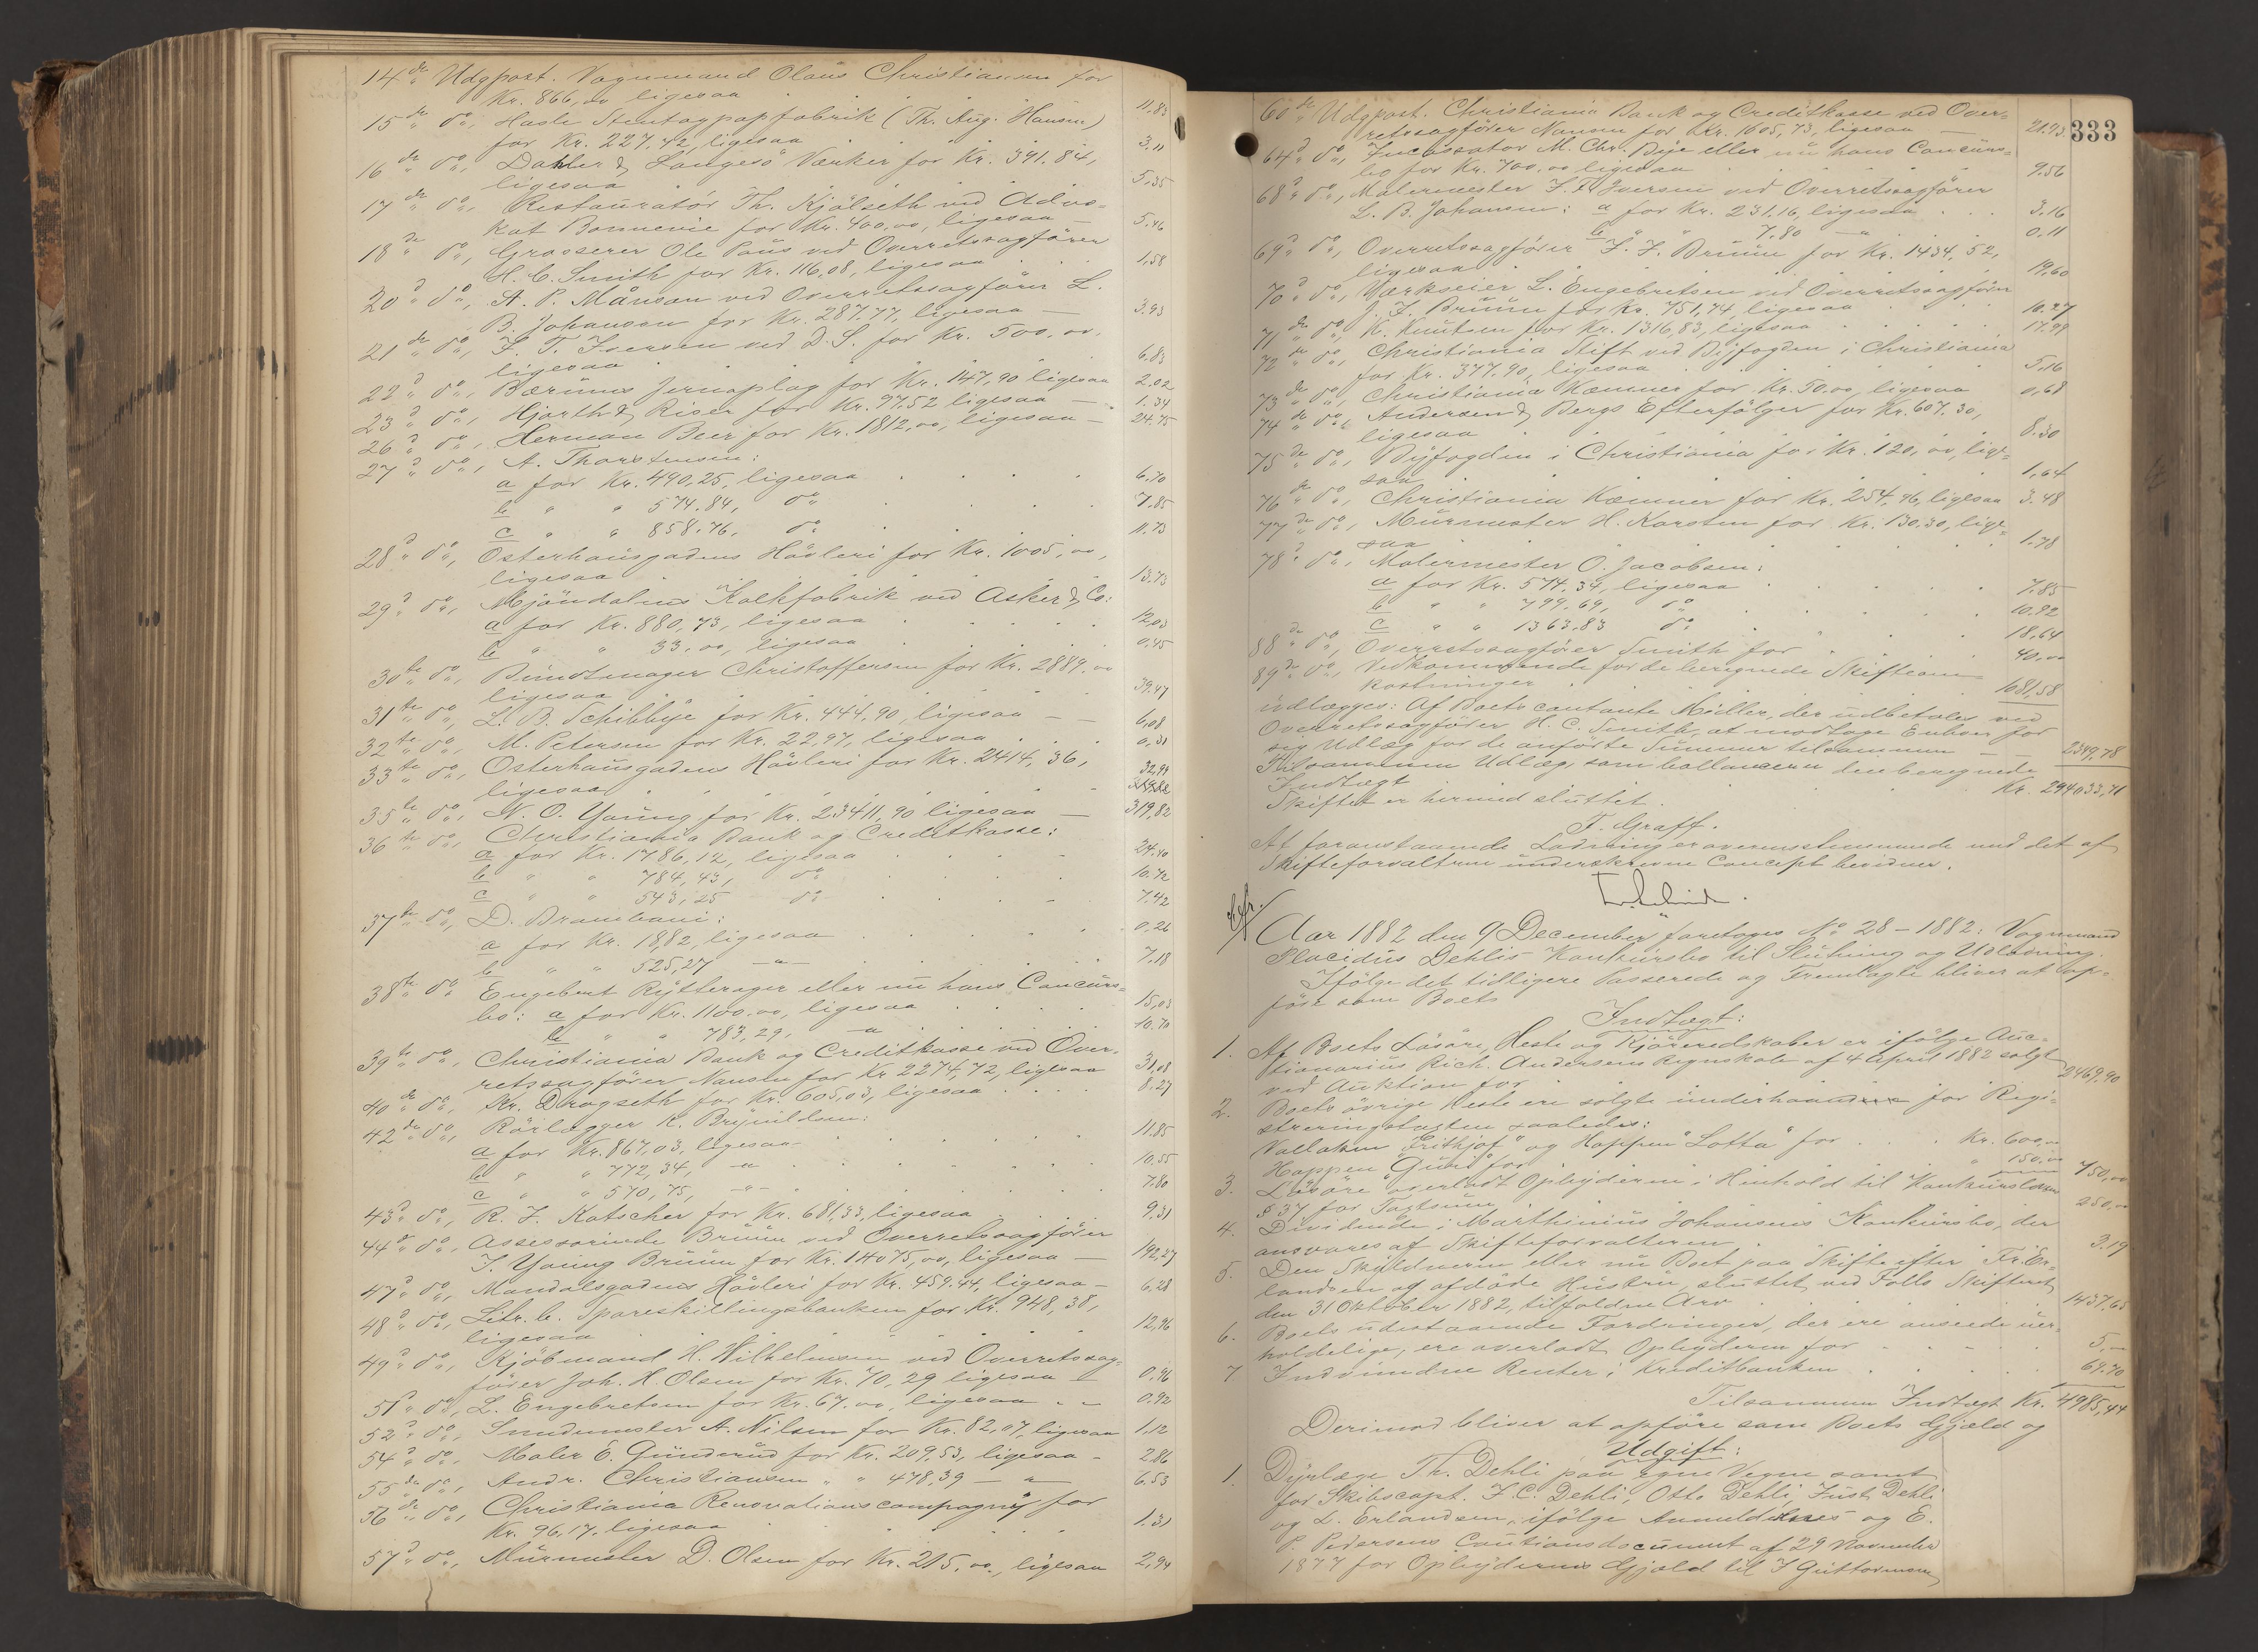 14de Udgpost. Vognmand Olaus Christiansen for
Kr. 866,00 ligesaa 11,83
15de do, Hasle Stentøypapfabrik (Th. Aug. Hansen)
for Kr. 227.42, ligesaa 3.11
16de do, Dahler & Langesö Værker for Kr. 391.84,
ligesaa 5,35
17de do, Restauratør Th. Kjölseth ved Advo-
kat Bonnevie for Kr. 400,00, ligesaa 5,46
18de do, Grosserer Ole Paus ved Overretssagförer
H. C. Smith for Kr. 116,08, ligesaa 1,58
20d do, A. P. Månson ved Overretssagförer L.
B. Johansen for Kr. 287.77, ligesaa 3.93
21de do, F. T. Iversen ved D.S. for Kr. 500,00,
ligesaa 6.83
22d do, Bærums Jernoplag for Kr. 147,90 ligesaa 2.02
23d do, Hjorth & Riser for Kr. 97.52 ligesaa 1.34
26d do, Herman Beer for Kr. 1812,00, ligesaa 24.75
27d do, A. Thorstensen:
a for Kr. 490,25, ligesaa 6.70
b " " 574.84, do 7.85
c " " 858.76, do 11.73
28d do, Osterhausgadens Hövleri for Kr. 1005,00,
ligesaa 13.73
29d do, Mjöndalens Kalkfabrik ved Asker & Co:
a for Kr. 880,73, ligesaa 12,03
b " " 33,00, ligesaa 0.45
30te do, Bundtmager Christoffersen for Kr. 2889,00
ligesaa 39.47
31te do, L. B. Schibbye for Kr. 444,90, ligesaa 6,08
32te do, M. Petersen for Kr. 22,97, ligesaa 0,31
33te do, Osterhausgadens Hövleri for Kr. 2414,36,
ligesaa 32,99
35te do, N. O. Young for Kr. 23411,90 ligesaa 319,82
36te do, Christiania Bank og Creditkasse:
a for Kr. 1786,12, ligesaa 24.40
b " " 784,43, do 10.72
c " " 543,25 do 7.42
37te do, D. Brambani:
a for Kr. 18,82, ligesaa 0.26
b " " 525,27 —"— 7.18
38te do Engebret Rytterager eller nu hans Concurs-
bo: a for Kr. 1100,00, ligesaa 15,03
b " " 783,29, —" 10.70
39te do, Christiania Bank og Creditkasse ved Over-
retssagförer Nansen for Kr 2274,72, ligesaa 31,08
40de do, Kr. Dragseth for Kr. 605,03, ligesaa 8.27
42de do, Rörlægger K. Brynildsen:
a for Kr. 867,03, ligesaa 11.85
b " " 772,34, —" 10,55
c " " 570,75, —"— 7.80
43d do, R. F. Kotscher for Kr. 681,33, ligesaa 9,31
44de do, Assessorinde Bruun ved Overretssagförer
J. Young Bruun for Kr. 14075,00, ligesaa 192,27
47d do, Mandalsgadens Hövleri for Kr. 459.44, ligesaa 6,28
48d do, Litr. b. Spareskillingsbanken for Kr. 948,38,
ligesaa 12,96
49d do, Kjöbmand H. Wilhelmsen ved Overretssag-
förer Joh. H. Olsen for Kr. 70,29 ligesaa 0,96
51de do, L. Engebretsen for Kr. 67.00, ligesaa 0.92
52d do, Smedmester A. Nilsen for Kr. 82,07, ligesaa 1,12
54d do, Maler E. Gunderud for Kr. 209,53, ligesaa 2.86
55de do, Andr. Christiansen " " 478,39 — " 6.53
56de do, Christiania Renovationscompagni for
Kr. 96.17, ligesaa 1.31
57d do, Murmester D. Olsen for Kr. 215,00, ligesaa 2,94
333
60de Udgpost. Christiania Bank og Creditkasse ved Over-
retssagförer Nansen for Kr. 1605,73, ligesaa 21.93
64d do, Incassator M. Chr. Bye eller nu hans Concurs-
bo for Kr. 700,00 ligesaa 9.56
68d do, Malermester F. T. Iversen ved Overretssagförer
L. B. Johansen: a for Kr. 231.16, ligesaa 3.16
b " " 7.80 —" 0.11
69d do, Overretssagförer J. F. Bruun for Kr. 1434,52,
ligesaa 19,60
70d do, Værkseier L. Engebretsen ved Overretssagförer
J. F. Bruun for Kr. 751,74, ligesaa 10.27
71de do, K. Knutsen for Kr. 1316,83, ligesaa 17.99
72de do, Christiania Stift ved Byfogden i Christiania
for Kr. 377.90, ligesaa 5,16
73de do, Christiania Kæmner for Kr. 50,00, ligesaa 0,68
74de do, Andersen & Bergs Efterfölger for Kr. 607.30,
ligesaa 8.30
75de do, Byfogden i Christiania for Kr. 120,00, lige-
saa 1,64
76de do, Christiania Kæmner for Kr. 254,96, ligesaa 3.48
77de do, Murmester H. Karsten for Kr. 130,30, lige-
saa 1.78
78d do, Malermester O. Jacobsen:
a for Kr. 574,34, ligesaa 7.85
b " " 799.69, do 10.92
c " " 1363.83 do 18,64
88de do, Overretssagförer Smith for 40,00
89de do, Vedkommende for de beregnede Skifteom-
kostninger 1681,58
udlægges: Af Boets contante Midler, der udbetales ved
Overretssagförer H. C. Smith, at modtage Enhver for
sig Udlæg for de anförte Summer tilsammen 2349,78
Tilsammen Udlæg, som ballancerer den beregnede
Indtægt Kr. 294033,71
Skiftet er hermed sluttet.
F. Graff.
At foranstaaende Lodning er overensstemmende med det af
Skifteforvalteren underskrevne Concept bevidner.
Aar 1882 den 9 December foretoges No 28 – 1882: Vognmand
Placidus Dehlis Konkursbo til Slutning og Udlodning.
Ifölge det tidligere Passerede og Fremlagte bliver at op-
före som Boets
Indtægt:
1. Af Boets Lösöre, Heste og Kjöreredskaber er ifölge Auc-
tionarius Rich. Andersens Regnskab af 4 April 1882 solgt
ved Auktion for 2469,90
2. Boets övrige Heste ere solgte underhaanden for Regi-
streringstaxten saaledes:
Vallaken "Frithjof" og Hoppen "Lotta" for Kr. 600,00
Hoppen "Guri" for " 150,00 750,00
3. Lösöre overladt Opbyderen i Henhold til Konkurslovens
§ 37 for Taxtsum 250,00
4. Dividende i Marthinius Johansens Konkursbo, der
ansvares af Skifteforvalteren 3.19
5. Den Skyldneren eller nu Boet paa Skifte efter Fr. Er-
landsen og afdöde Hustru, sluttet ved Follo Skifteret
den 31 Oktober 1882, tilfaldne Arv 1437,65
6. Boets udestaaende Fordringer, der ere anseede uer-
holdelige, ere overladt Opbyderen for 5,—
7 Indvundne Renter i Kreditbanken 69.70
Tilsammen Indtægt Kr. 4985,44
Derimod bliver at opföre som Boets Gjæld og
Udgift:
1. Dyrlæge Th. Dehli paa egne Vegne samt
for Skibscapt. F. C. Dehli, Otto Dehli, Just Dehli
og L. Erlandsen, ifölge Anmeldelses og E.
P. Pedersens Cautionsdocument af 29 November
1877 for Opbyderens Gjæld til J Guttormsen